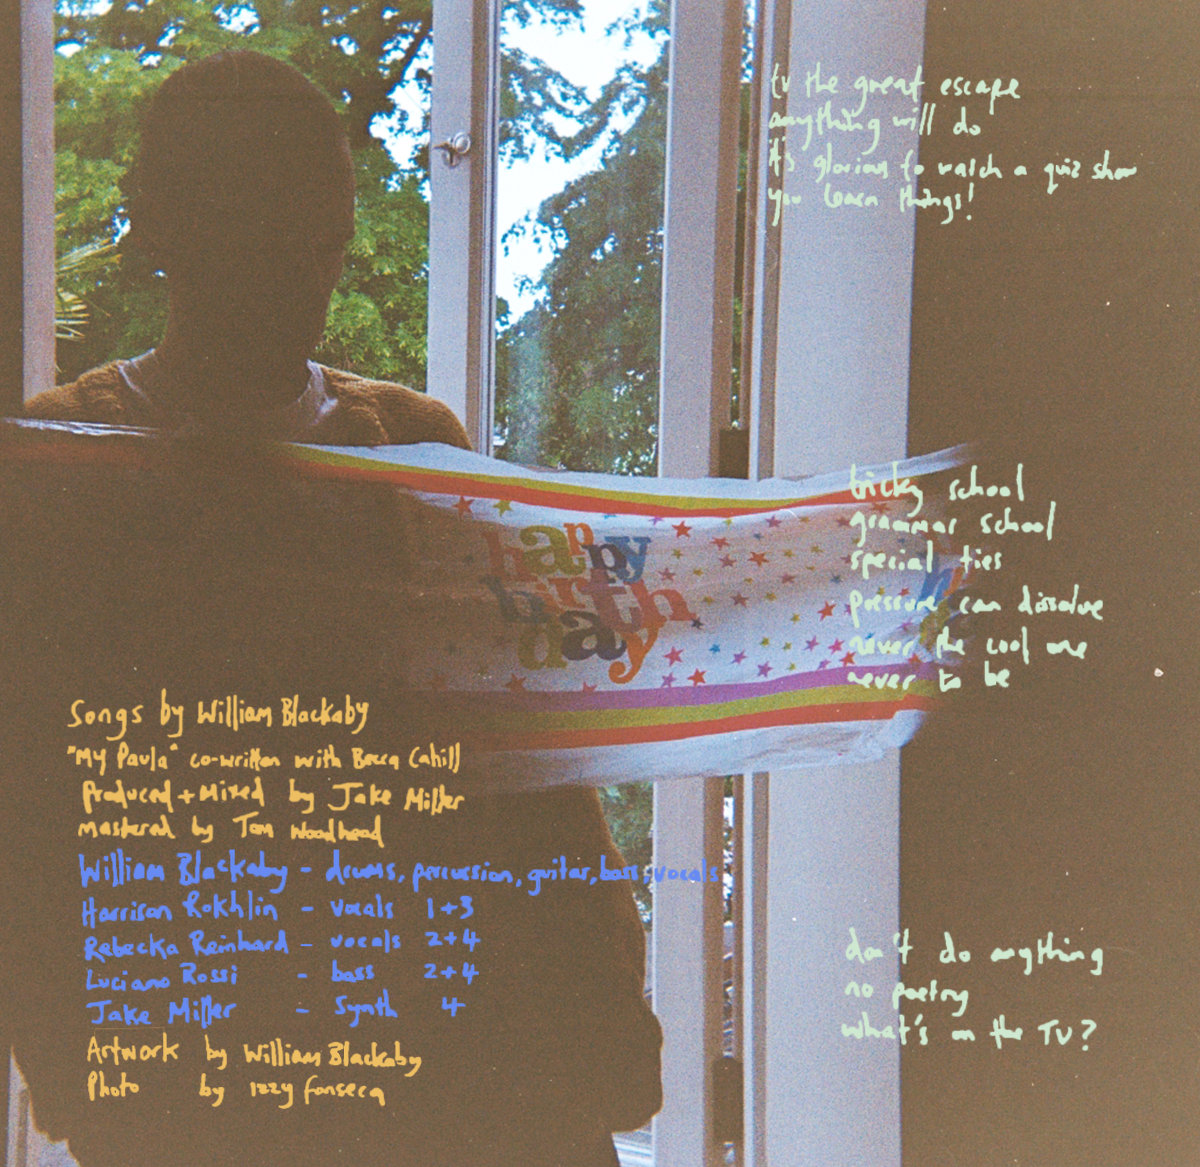 tv the great escape
anything will do
it's glorious to watch a quiz show
you learn things!
happy
birth
day
tricky school
grammar school
special ties
pressure can dissolve
never the cool one
never to be
Songs by William Blackaby
"My Paula" co-written with Becca Cahill
Produced + Mixed by Jake Miller
mastered by Tom Woodhead
William Blackaby - drums, percussion, guitar, bass, vocals
Harrison Rokhlin - vocals 1+3
Rebecka Reinhard - vocals 2+4
Luciano Rossi - bass 2+4
Jake Miller - Synth 4
Artwork by William Blackaby
Photo by Izzy Fonseca
don't do anything
no poetry
what's on the TV?